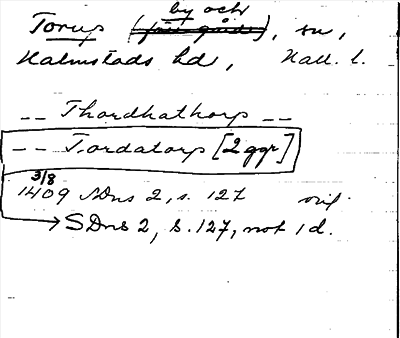 by och
Torup (två gårdar), sn,
Halmstads hd, Hall. l.
-- Thordhathorp --
-- Tordatorp [2 ggr]
3/8
1409 SDns 2, s. 127 orig.
SDns 2, s. 127, not 1 d.